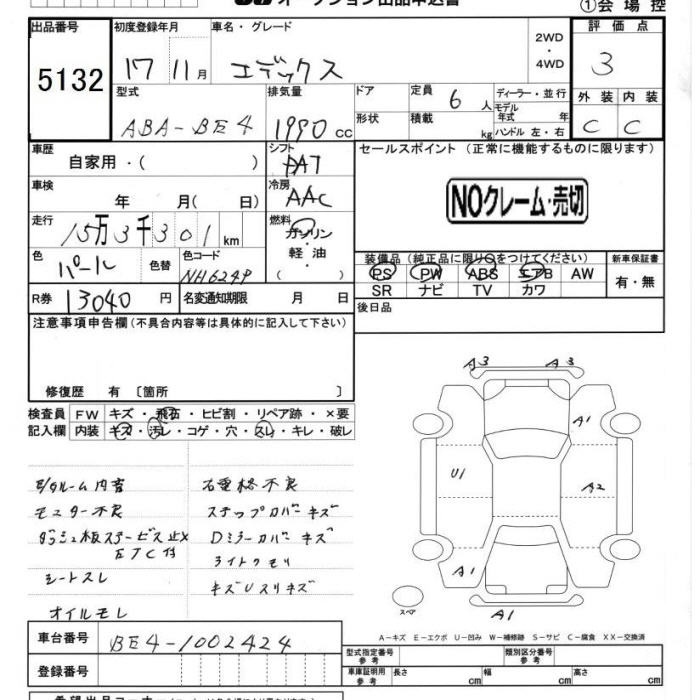 オークション出品申込書
①会場控
出品番号 初度登録年月 車名・グレード 2WD ・ 4WD 評価点
5132 17 11月 エデックス 3
型式 排気量 ドア 定員 6人 ディーラー・並行 外装 内装
モデル年式 年
ABA-BE4 1990cc 形状 積載 kg ハンドル 左・右 C C
車歴 シフト セールスポイント (正常に機能するものに限ります)
自家用・( ) FAT
車検 冷房
年 月( 日) AAC NOクレーム・売切
走行 燃料
15万3千301km ガソリン
色 色替 色コード 軽油 装備品(純正品に限り○をつけてください) 新車保証書
パール NH624P ( ) PS PW ABS エアB AW 有・無
SR ナビ TV カワ
R券 13040円 名変通知期限 月 日 後日品
注意事項申告欄(不具合内容等は具体的に記入して下さい)
修復歴 有 〔箇所 〕
検査員 FW キズ・飛石・ヒビ割・リペア跡・×要
記入欄 内装 キズ・汚レ・コゲ・穴・スレ・キレ・破レ
モニター不良
シートスレ
オイルモレ
ステップカバーキズ
Dミラーカバーキズ
ライトクモリ
キズUスリキズ
A3 A3
A1
U1
A2
A1
A1
スペア
A-キズ E-エクボ U-凹み W-補修跡 S-サビ C-腐食 XX-交換済
車台番号 BE4-1002424
型式指定番号 参考 類別区分番号 参考
登録番号 車庫証明用 参考 長さ 幅 高さ